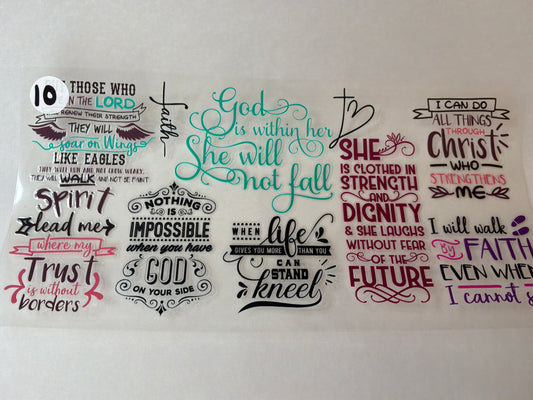 10
THOSE WHO
IN THE LORD
RENEW THEIR STRENGTH
THEY WILL
soar on Wings
LIKE EAGLES
THEY WILL RUN AND NOT GROW WEARY,
THEY WILL WALK AND NOT BE FAINT
faith
God
is within her
She will
not fall
SHE
IS CLOTHED IN
STRENGTH
AND
DIGNITY
& SHE LAUGHS
WITHOUT FEAR
OF THE
FUTURE
I CAN DO
ALL THINGS
THROUGH
Christ
WHO
STRENGTHENS
ME
Spirit
lead me
where my
Trust
is without
borders
NOTHING
IS
IMPOSSIBLE
when you have
GOD
ON YOUR SIDE
WHEN life
GIVES YOU MORE THAN YOU
CAN
STAND
kneel
I will walk
By
FAITH
EVEN WHEN
I cannot